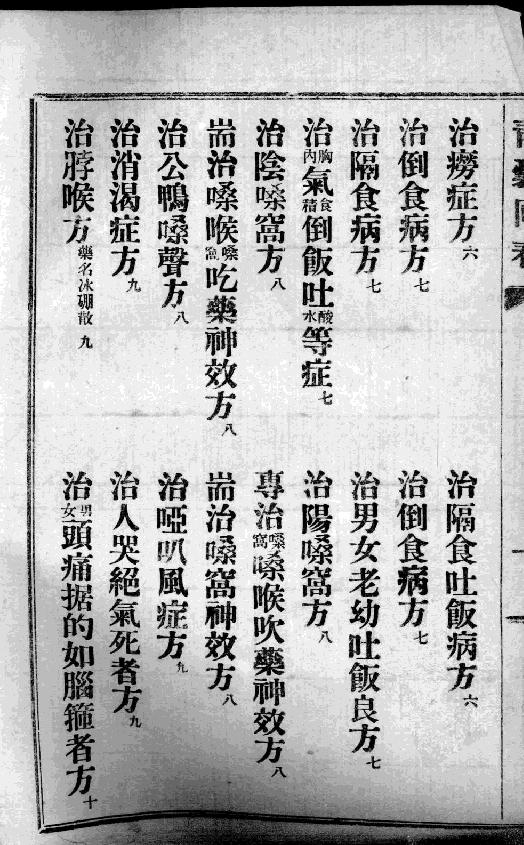 治癆症方六
治隔食吐飯病方六
治倒食病方七
治倒食病方七
治隔食病方七
治男女老幼吐飯良方七
治胸内氣食積倒飯吐酸水等症七
治陽嗓窩方八
治陰嗓窩方八
專治嗓窩嗓喉吹藥神效方八
耑治嗓喉嗓窩吃藥神效方八
耑治嗓窩神效方八
治公鴨嗓聲方八
治啞叭風症方九
治消渴症方九
治人哭絕氣死者方九
治脖喉方藥名冰硼散九
治男女頭痛据的如腦箍者方十